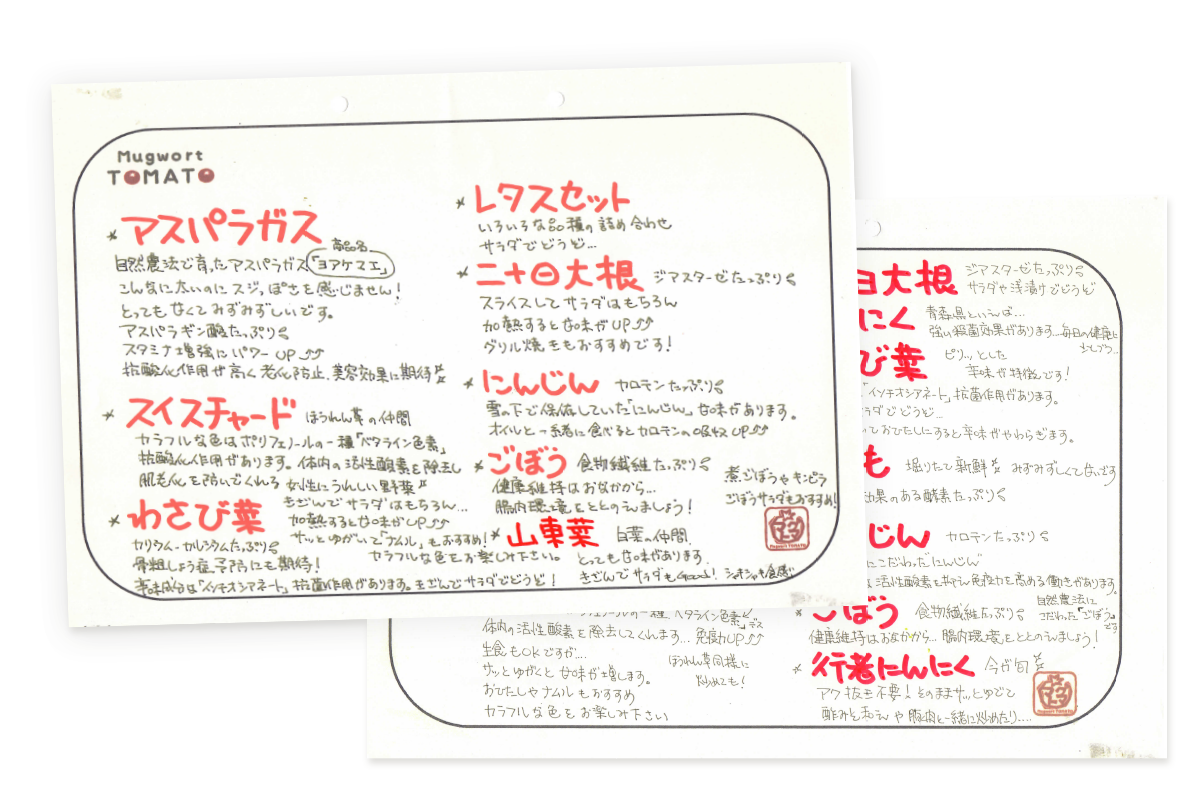 Mugwort
TOMATO
* アスパラガス
商品名
自然農法で育ったアスパラガス「ヨアケマエ」
こんなに太いのにスジっぽさを感じません!
とっても甘くてみずみずしいです。
アスパラギン酸たっぷり
スタミナ増強にパワーUP
抗酸化作用が高く老化防止、美容効果に期待
* スイスチャード ほうれん草の仲間
カラフルな色はポリフェノールの一種「ベタライン色素」
抗酸化作用があります。体内の活性酸素を除去し
肌老化を防いでくれる 女性にうれしい野菜
きざんでサラダはもちろん...
加熱すると甘味がUP
サッとゆがいて「ナムル」もおすすめ!
カラフルな色をお楽しみ下さい。
* わさび菜
カリウム・カルシウムたっぷり
骨粗しょう症予防にも期待!
辛味成分は「イソチオシアネート」抗菌作用があります。きざんでサラダでどうぞ!
* レタスセット
いろいろな品種の詰め合わせ
サラダでどうぞ...
* 二十日大根 ジアスターゼたっぷり
スライスしてサラダはもちろん
加熱すると甘味がUP
グリル焼きもおすすめです!
* にんじん カロテンたっぷり
雪の下で保存していた「にんじん」甘味があります。
オイルと一緒に食べるとカロテンの吸収UP
* ごぼう 食物繊維たっぷり
健康維持はおなかから...
腸内環境をととのえましょう!
煮ごぼうやキンピラ
ごぼうサラダもおすすめ!
* 山東菜 白菜の仲間
とっても甘味があります。
きざんでサラダもGood! シャキシャキ食感
日大根 ジアスターゼたっぷり
サラダや浅漬けでどうぞ
にく 青森県といえば...
強い殺菌効果があります...毎日の健康に
び菜 ピリッとした
辛味が特徴です!
「イソチオシアネート」抗菌作用があります。
ラダでどうぞ...
っておひたしにすると辛味がやわらぎます。
も 掘りたて新鮮 みずみずしくて甘いです
効果のある酵素たっぷり
じん カロテンたっぷり
にこだわったにんじん
は活性酸素を抑え免疫力を高める働きがあります。
* ごぼう 食物繊維たっぷり
自然農法に
こだわった「ごぼう」
です
健康維持はおなかから... 腸内環境をととのえましょう!
* 行者にんにく 今が旬
アク抜き不要!そのままサッとゆでて
酢みそあえや豚肉と一緒に炒めたり....
フェノールの一種「ベタライン色素」です
体内の活性酸素を除去してくれます... 免疫力UP
生食もOKですが...
サッとゆがくと甘味が増します。
おひたしやナムルもおすすめ
カラフルな色をお楽しみ下さい
ほうれん草同様に
炒めても!